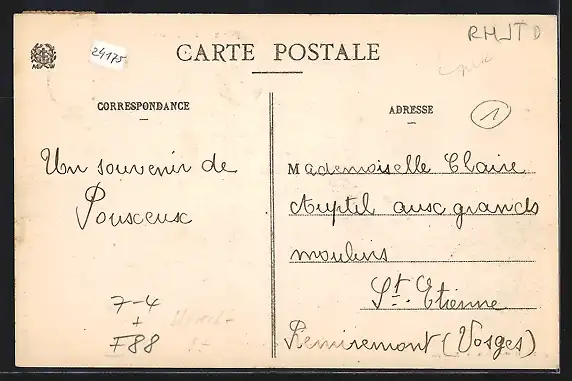 RMJTD
24175
CARTE POSTALE
CORRESPONDANCE
ADRESSE
1
Un souvenir de
Pouxeux
7-4
+
F88
Mademoiselle Claire
aux grands
moulins
St. Etienne
Remiremont (Vosges)